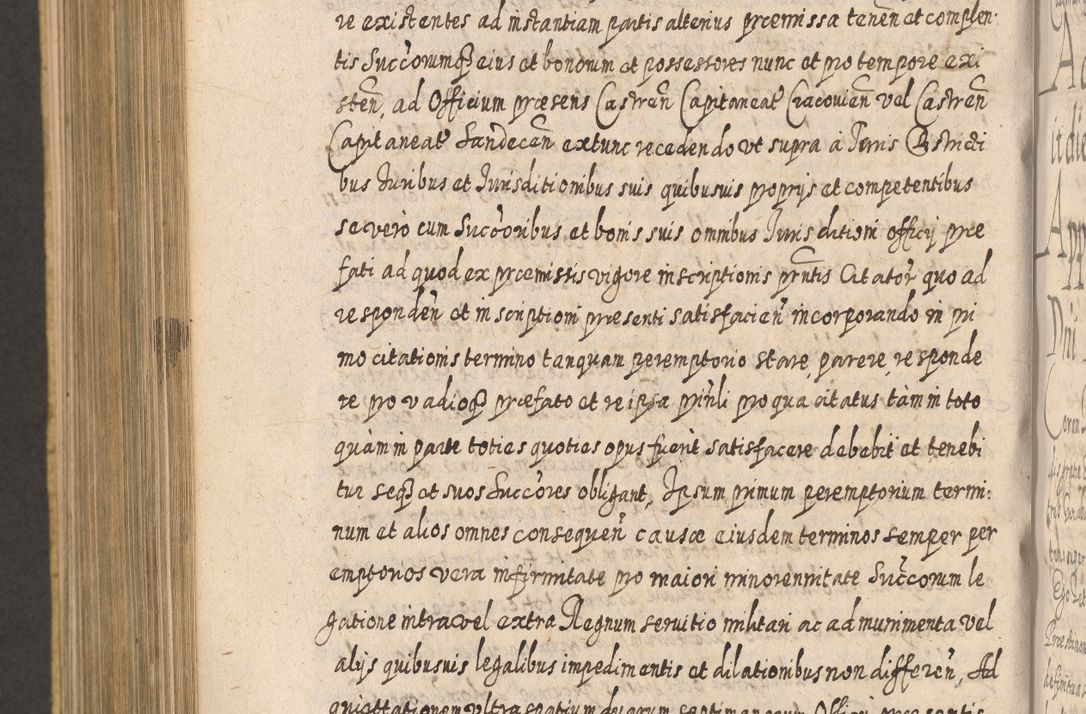 re existentes ad instantiam partis alterius præmissa tenen̄ et complen-
tis Succ̄orumq̃ eius et bonorum et possessores nunc et pro tempore exi
sten̄, ad Officium præsens Castren̄ Capitaneat⁹ Cracovien̄ vel Castren̄
Capitaneat⁹ Sandecen̄ extunc recedendo ut supra à Juris Districti
bus Juribus et Jurisditionibus suis quibusuis proprijs et competentibus
se verò cum Succ̄oribus et bonis suis omnibus Jurisditioni officij præ
fati ad quod ex præmissis vigore inscriptionis pr̄ntis Citator̄ quo ad
responden̄ et inscriptioni præsenti satisfacien̄ incorporando in pri
mo citationis termino tanquam peremptorio stare, parere, responde
re pro vadioq̃ præfato et re ipsa prin̄li pro qua citatus tàm in toto
quàm in parte toties quoties opus fuerit satisfacere debebit et tenebi
tur seq̃ et suos Succ̄ores obligant, Ipsum primum peremptorium termi:
num et alios omnes consequen̄ causæ eiusdem terminos semper per
emptorios vera infirmitate pro maiori minorennitate Succ̄orum le
gatione intra vel extra Regnum seruitio militari ac ad munimenta vel
alijs quibusuis legalibus impedimentis et dilationibus non differen̄, Ad
quiettationem ultra spatium duarum septimanarum Officij præsentis